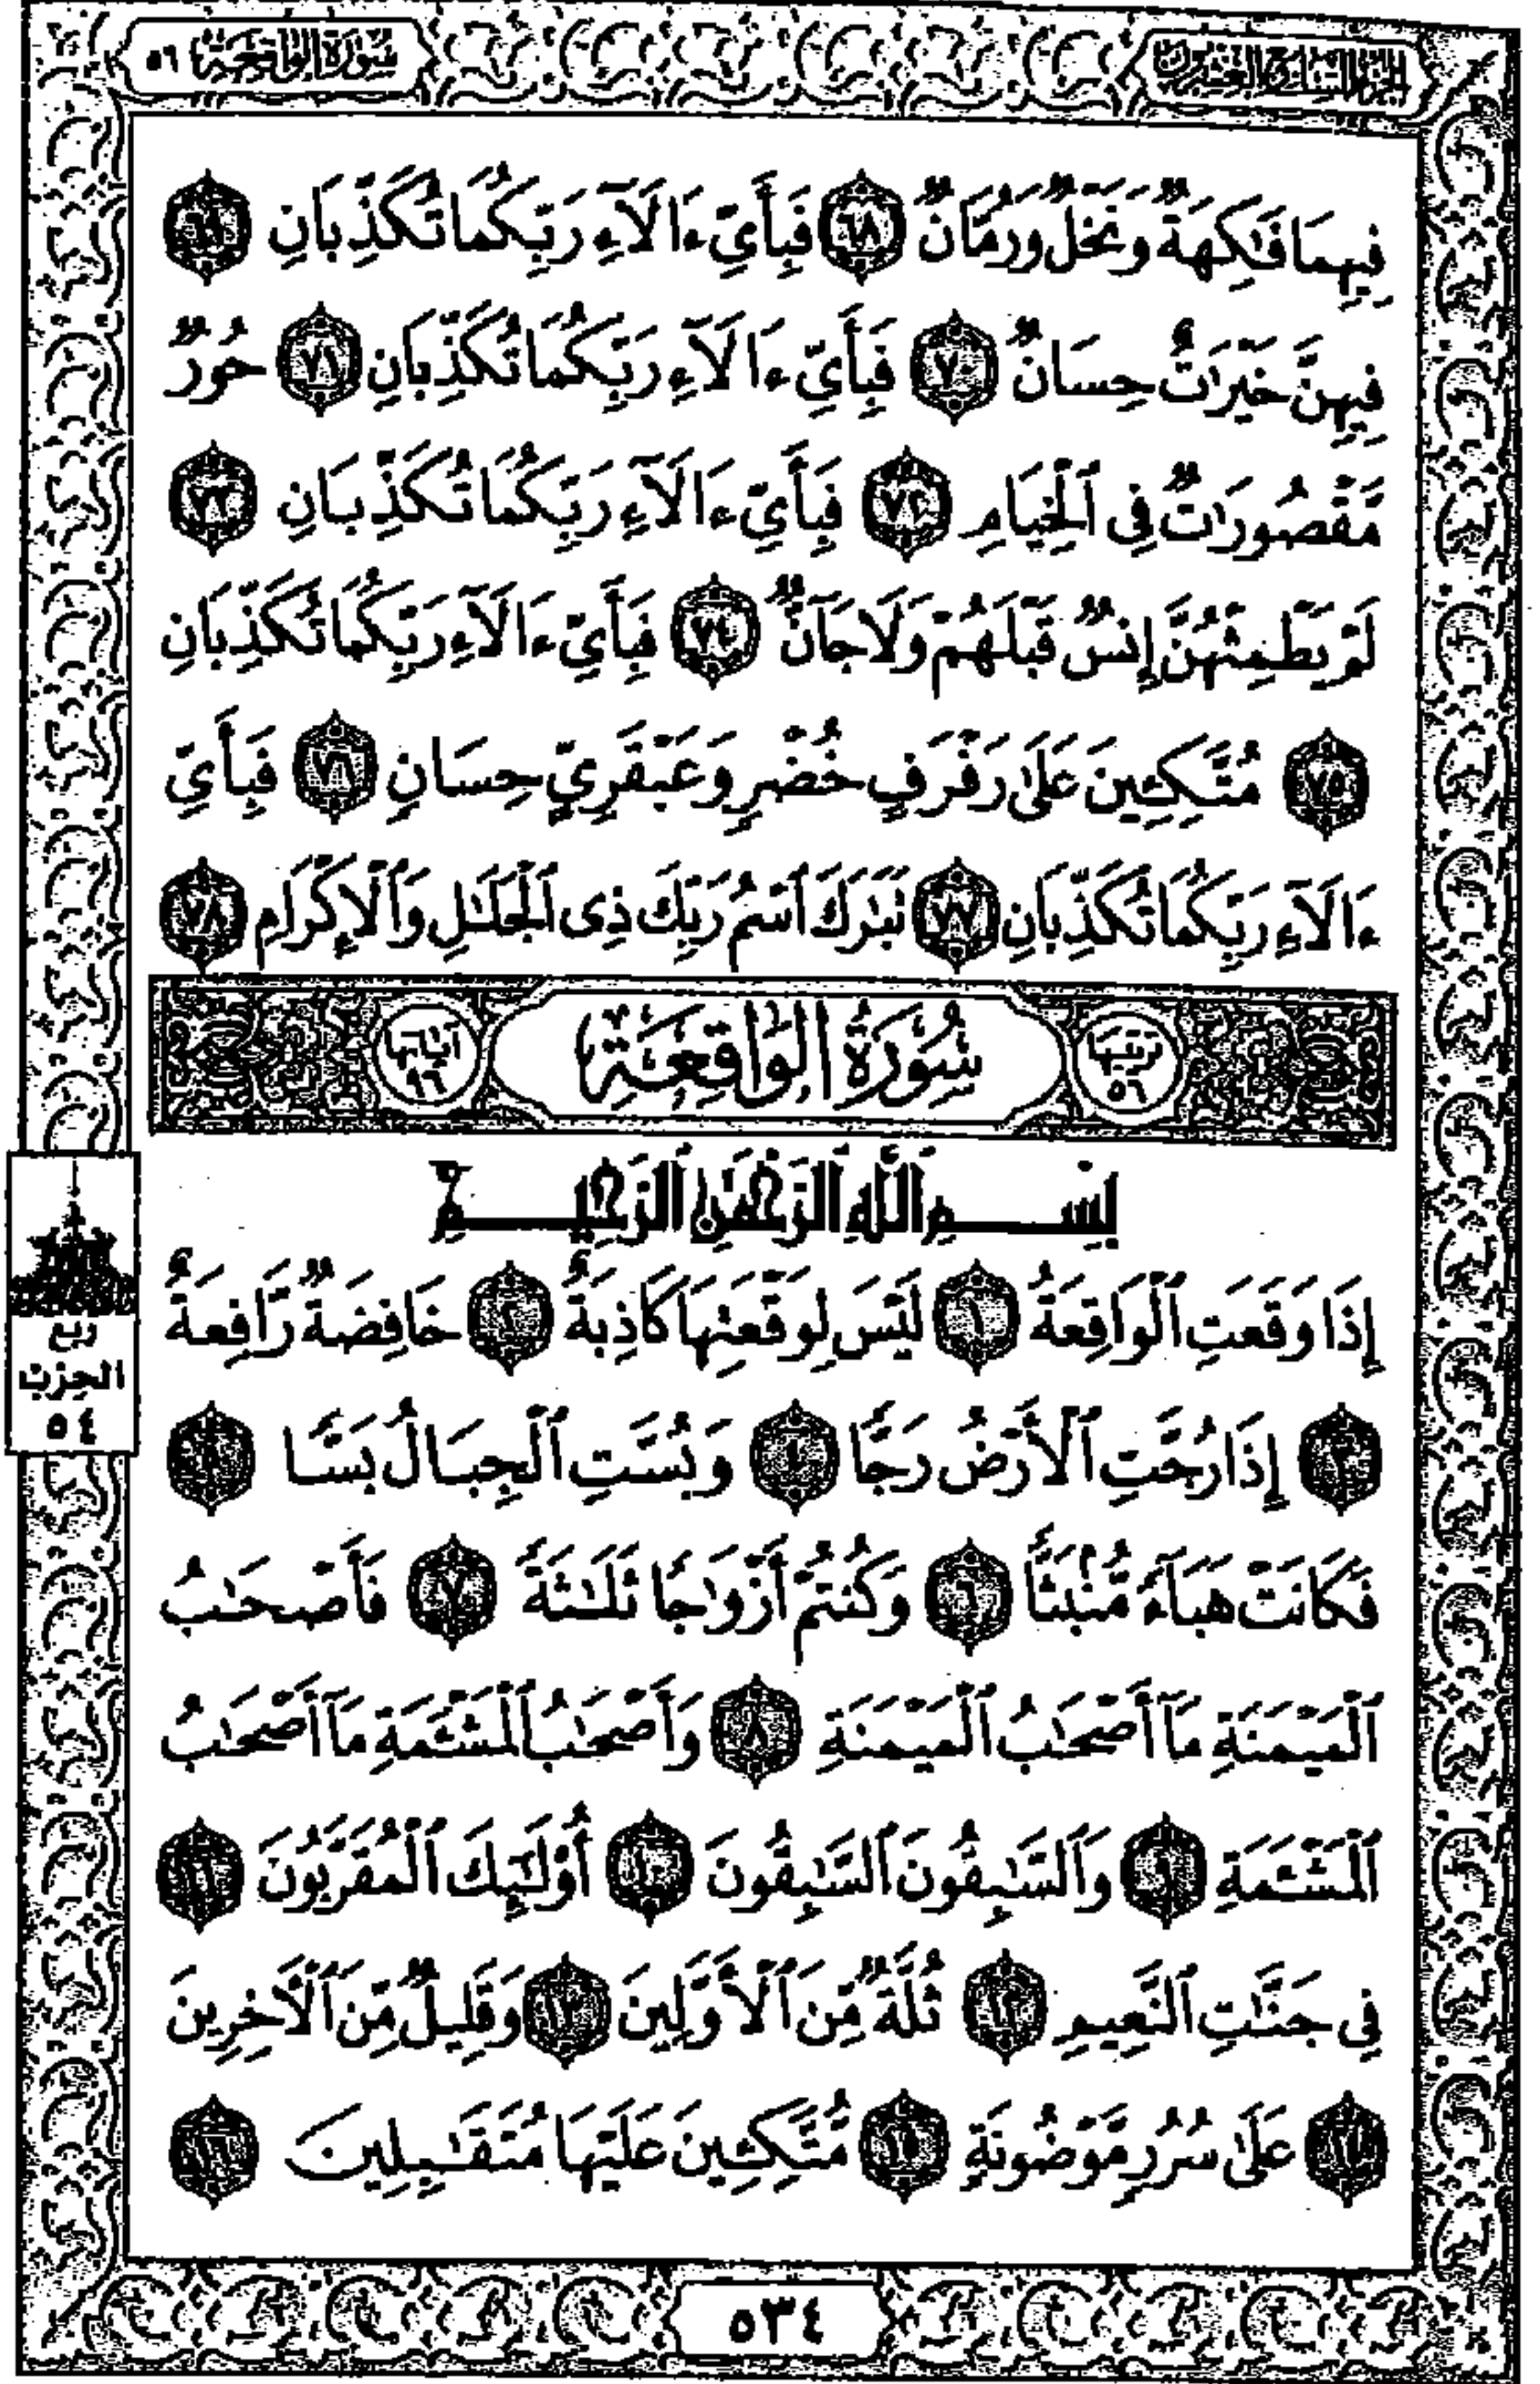 الجزء السابع والعشرون
سورة الواقعة ٥٦
فِيهِمَا فَٰكِهَةٌ وَنَخْلٌ وَرُمَّانٌ ٦٨ فَبِأَىِّ ءَالَآءِ رَبِّكُمَا تُكَذِّبَانِ ٦٩
فِيهِنَّ خَيْرَٰتٌ حِسَانٌ ٧٠ فَبِأَىِّ ءَالَآءِ رَبِّكُمَا تُكَذِّبَانِ ٧١ حُورٌ
مَّقْصُورَٰتٌ فِى ٱلْخِيَامِ ٧٢ فَبِأَىِّ ءَالَآءِ رَبِّكُمَا تُكَذِّبَانِ ٧٣
لَمْ يَطْمِثْهُنَّ إِنسٌ قَبْلَهُمْ وَلَا جَآنٌّ ٧٤ فَبِأَىِّ ءَالَآءِ رَبِّكُمَا تُكَذِّبَانِ
٧٥ مُتَّكِـِٔينَ عَلَىٰ رَفْرَفٍ خُضْرٍ وَعَبْقَرِىٍّ حِسَانٍ ٧٦ فَبِأَىِّ
ءَالَآءِ رَبِّكُمَا تُكَذِّبَانِ ٧٧ تَبَٰرَكَ ٱسْمُ رَبِّكَ ذِى ٱلْجَلَٰلِ وَٱلْإِكْرَامِ ٧٨
ترتيبها ٥٦ سُورَةُ الوَاقِعَةِ آياتها ٩٦
بِسْمِ ٱللَّهِ ٱلرَّحْمَٰنِ ٱلرَّحِيمِ
إِذَا وَقَعَتِ ٱلْوَاقِعَةُ ١ لَيْسَ لِوَقْعَتِهَا كَاذِبَةٌ ٢ خَافِضَةٌ رَّافِعَةٌ
٣ إِذَا رُجَّتِ ٱلْأَرْضُ رَجًّا ٤ وَبُسَّتِ ٱلْجِبَالُ بَسًّا ٥
فَكَانَتْ هَبَآءً مُّنۢبَثًّا ٦ وَكُنتُمْ أَزْوَٰجًا ثَلَٰثَةً ٧ فَأَصْحَٰبُ
ٱلْمَيْمَنَةِ مَآ أَصْحَٰبُ ٱلْمَيْمَنَةِ ٨ وَأَصْحَٰبُ ٱلْمَشْـَٔمَةِ مَآ أَصْحَٰبُ
ٱلْمَشْـَٔمَةِ ٩ وَٱلسَّٰبِقُونَ ٱلسَّٰبِقُونَ ١٠ أُو۟لَٰٓئِكَ ٱلْمُقَرَّبُونَ ١١
فِى جَنَّٰتِ ٱلنَّعِيمِ ١٢ ثُلَّةٌ مِّنَ ٱلْأَوَّلِينَ ١٣ وَقَلِيلٌ مِّنَ ٱلْءَاخِرِينَ
١٤ عَلَىٰ سُرُرٍ مَّوْضُونَةٍ ١٥ مُّتَّكِـِٔينَ عَلَيْهَا مُتَقَٰبِلِينَ ١٦
ربع
الحزب
٥٤
٥٣٤